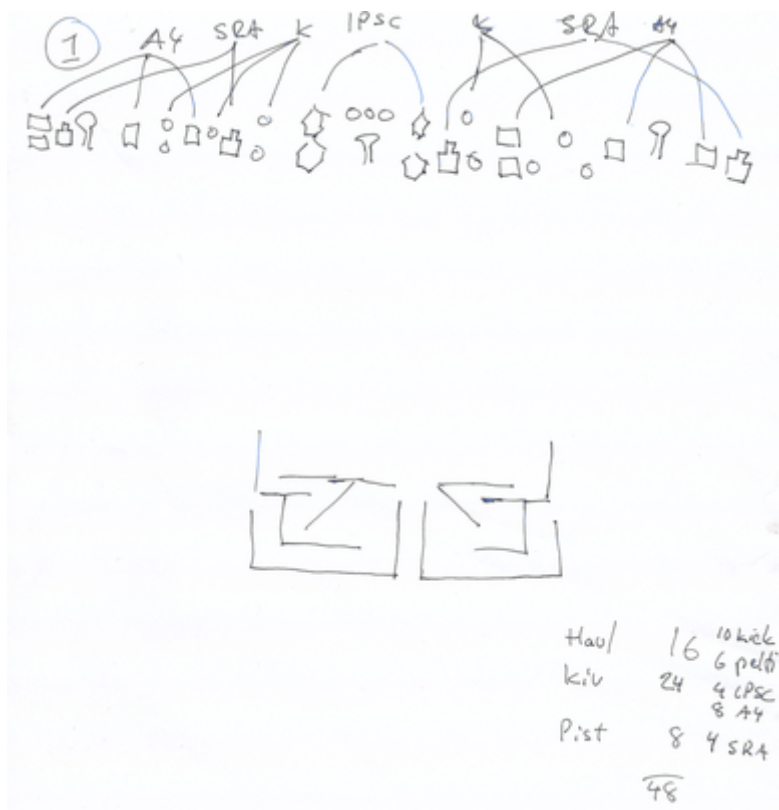 1 A4 SRA K IPSC K SRA A4
Haul 16 10 kiek
6 pelti
Kiv 24 4 IPSC
8 A4
Pist 8 4 SRA
48